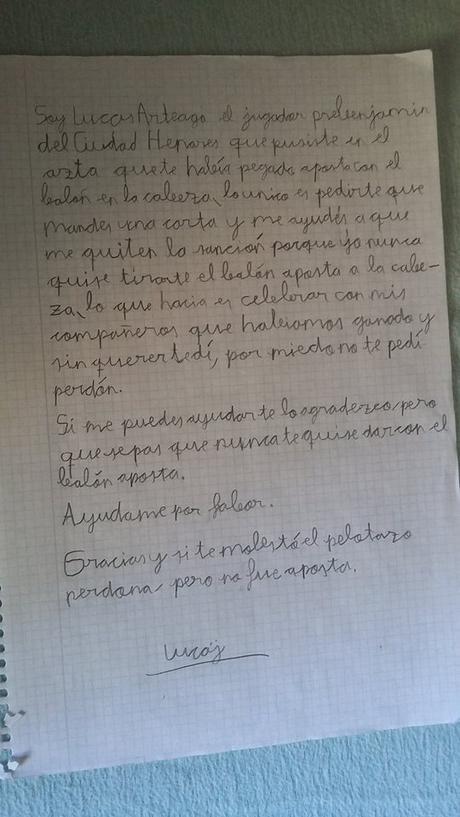 Soy Lucas Arteago el jugador prebenjamin
del Ciudad Henares que pusiste en el
azta que te había pegado aposta con el
balón en la cabeza, lo unico es pedirte que
mandes una carta y me ayudes a que
me quiten la sanción porque yo nunca
quise tirarte el balón aposta a la cabe-
za, lo que hacia es celebrar con mis
compañeros que habiamos ganado y
sin querer te dí, por miedo no te pedí
perdón.
Si me puedes ayudar te lo agradezco, pero
que sepas que nunca te quise dar con el
balón aposta.
Ayudame por fabor.
Gracias y si te molestó el pelotazo
perdona, pero no fue aposta.
Lucas